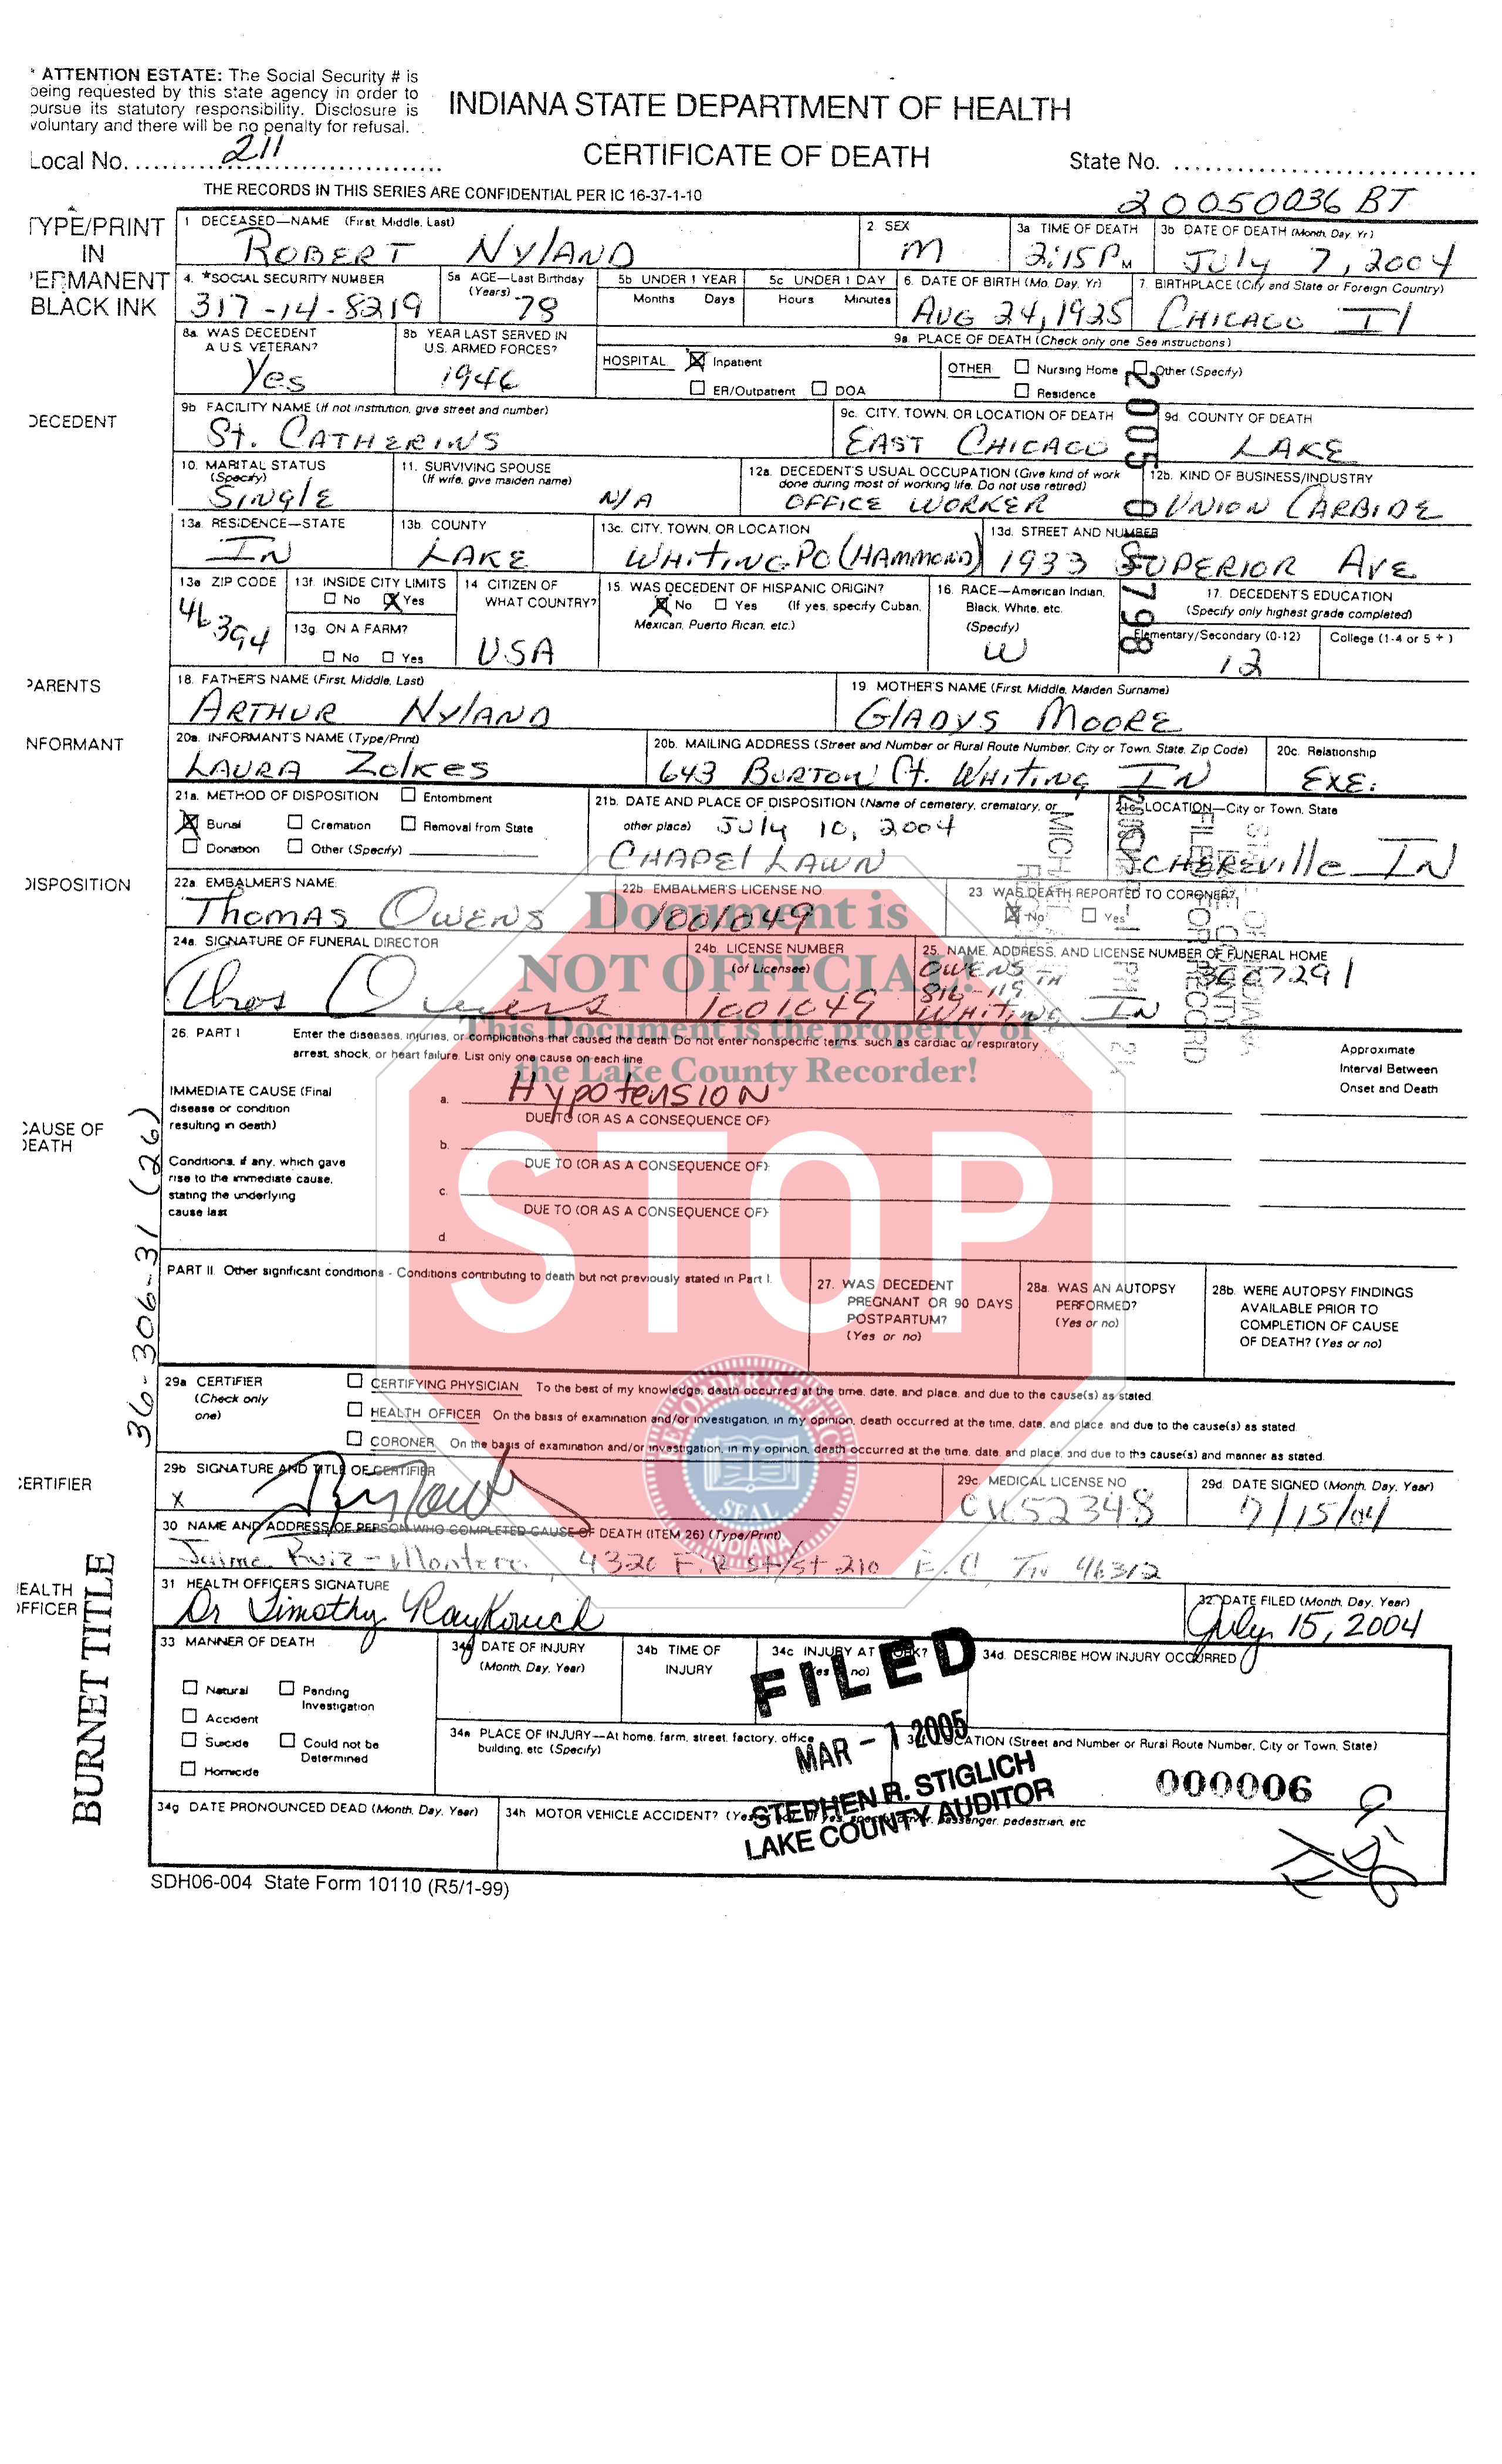 * ATTENTION ESTATE: The Social Security # is
being requested by this state agency in order to
pursue its statutory responsibility. Disclosure is
voluntary and there will be no penalty for refusal.
INDIANA STATE DEPARTMENT OF HEALTH
CERTIFICATE OF DEATH
Local No. 211
State No.
THE RECORDS IN THIS SERIES ARE CONFIDENTIAL PER IC 16-37-1-10
20050036 BT
TYPE/PRINT
IN
PERMANENT
BLACK INK
1 DECEASED—NAME (First, Middle, Last)
ROBERT NYLAND
2. SEX
M
3a TIME OF DEATH
2:15 PM
3b DATE OF DEATH (Month, Day, Yr.)
July 7, 2004
4. *SOCIAL SECURITY NUMBER
317-14-8219
5a AGE—Last Birthday (Years)
78
5b UNDER 1 YEAR
Months Days
5c UNDER 1 DAY
Hours Minutes
6. DATE OF BIRTH (Mo. Day, Yr)
AUG 24, 1925
7. BIRTHPLACE (City and State or Foreign Country)
CHICAGO Il
8a. WAS DECEDENT A U.S. VETERAN?
Yes
8b YEAR LAST SERVED IN U.S. ARMED FORCES?
1946
9a PLACE OF DEATH (Check only one See instructions)
HOSPITAL Inpatient
ER/Outpatient DOA
OTHER Nursing Home Other (Specify)
Residence
DECEDENT
9b FACILITY NAME (If not institution, give street and number)
St. CATHERINS
9c. CITY, TOWN, OR LOCATION OF DEATH
EAST CHICAGO
9d. COUNTY OF DEATH
LAKE
10. MARITAL STATUS (Specify)
SINGLE
11. SURVIVING SPOUSE (If wife, give maiden name)
N/A
12a. DECEDENT'S USUAL OCCUPATION (Give kind of work done during most of working life. Do not use retired)
OFFICE WORKER
12b. KIND OF BUSINESS/INDUSTRY
UNION CARBIDE
13a. RESIDENCE—STATE
IN
13b. COUNTY
LAKE
13c. CITY, TOWN, OR LOCATION
WHITING PO (HAMMOND)
13d. STREET AND NUMBER
1933 SUPERIOR AVE
13e ZIP CODE
46394
13f. INSIDE CITY LIMITS
No Yes
13g. ON A FARM?
No Yes
14 CITIZEN OF WHAT COUNTRY?
USA
15. WAS DECEDENT OF HISPANIC ORIGIN?
No Yes (If yes, specify Cuban,
Mexican, Puerto Rican, etc.)
16. RACE—American Indian, Black, White, etc. (Specify)
W
17. DECEDENT'S EDUCATION
(Specify only highest grade completed)
Elementary/Secondary (0-12) College (1-4 or 5 + )
12
PARENTS
18. FATHER'S NAME (First, Middle, Last)
ARTHUR NYLAND
19. MOTHER'S NAME (First, Middle, Maiden Surname)
GLADYS MOORE
INFORMANT
20a. INFORMANT'S NAME (Type/Print)
LAURA ZOLKES
20b. MAILING ADDRESS (Street and Number or Rural Route Number, City or Town, State, Zip Code)
643 BURTON Ct. WHITING IN
20c. Relationship
EXE.
21a. METHOD OF DISPOSITION Entombment
Burial Cremation Removal from State
Donation Other (Specify)
21b. DATE AND PLACE OF DISPOSITION (Name of cemetery, crematory, or other place)
July 10, 2004
CHAPEL LAWN
21c. LOCATION—City or Town, State
SCHEREVILLE IN
DISPOSITION
22a. EMBALMER'S NAME
THOMAS OWENS
22b EMBALMER'S LICENSE NO.
1001049
23 WAS DEATH REPORTED TO CORONER?
No Yes
24a. SIGNATURE OF FUNERAL DIRECTOR
Thos Owens
24b. LICENSE NUMBER (of Licensee)
1001049
25. NAME, ADDRESS, AND LICENSE NUMBER OF FUNERAL HOME
OWENS 3007291
816-119 TH
WHITING IN
Document is
NOT OFFICIAL!
This Document is the property of
the Lake County Recorder!
STOP
26. PART I Enter the diseases, injuries, or complications that caused the death Do not enter nonspecific terms, such as cardiac or respiratory
arrest, shock, or heart failure. List only one cause on each line.
Approximate
Interval Between
Onset and Death
CAUSE OF
DEATH
IMMEDIATE CAUSE (Final
disease or condition
resulting in death)
a. HypotENSION
DUE TO (OR AS A CONSEQUENCE OF)
b.
Conditions, if any, which gave
rise to the immediate cause,
stating the underlying
cause last
DUE TO (OR AS A CONSEQUENCE OF)
c.
DUE TO (OR AS A CONSEQUENCE OF)
d
36-306-31 (26)
PART II. Other significant conditions - Conditions contributing to death but not previously stated in Part I.
27. WAS DECEDENT
PREGNANT OR 90 DAYS
POSTPARTUM?
(Yes or no)
28a. WAS AN AUTOPSY
PERFORMED?
(Yes or no)
28b. WERE AUTOPSY FINDINGS
AVAILABLE PRIOR TO
COMPLETION OF CAUSE
OF DEATH? (Yes or no)
29a CERTIFIER
(Check only
one)
CERTIFYING PHYSICIAN To the best of my knowledge, death occurred at the time, date, and place, and due to the cause(s) as stated.
HEALTH OFFICER On the basis of examination and/or investigation, in my opinion, death occurred at the time, date, and place, and due to the cause(s) as stated.
CORONER On the basis of examination and/or investigation, in my opinion, death occurred at the time, date, and place, and due to the cause(s) and manner as stated.
RECORDER'S OFFICE
SEAL
INDIANA
CERTIFIER
29b SIGNATURE AND TITLE OF CERTIFIER
X
29c. MEDICAL LICENSE NO
29d. DATE SIGNED (Month, Day, Year)
7/15/04
30 NAME AND ADDRESS OF PERSON WHO COMPLETED CAUSE OF DEATH (ITEM 26) (Type/Print)
Jaime Ruiz-Montero, 4320 F.R St/St 210 E.C. IN 46312
HEALTH
OFFICER
31 HEALTH OFFICER'S SIGNATURE
Dr Timothy Raykovich
32 DATE FILED (Month, Day, Year)
July 15, 2004
BURNET TITLE
33 MANNER OF DEATH
Natural Pending Investigation
Accident
Suicide Could not be Determined
Homicide
34a DATE OF INJURY
(Month, Day, Year)
34b TIME OF
INJURY
34c INJURY AT WORK?
34d. DESCRIBE HOW INJURY OCCURRED
34e PLACE OF INJURY—At home, farm, street, factory, office
building, etc (Specify)
LOCATION (Street and Number or Rural Route Number, City or Town, State)
FILED
MAR - 1 2005
STEPHEN R. STIGLICH
LAKE COUNTY AUDITOR
000006
34g DATE PRONOUNCED DEAD (Month, Day, Year)
34h MOTOR VEHICLE ACCIDENT?
passenger, pedestrian, etc
SDH06-004 State Form 10110 (R5/1-99)